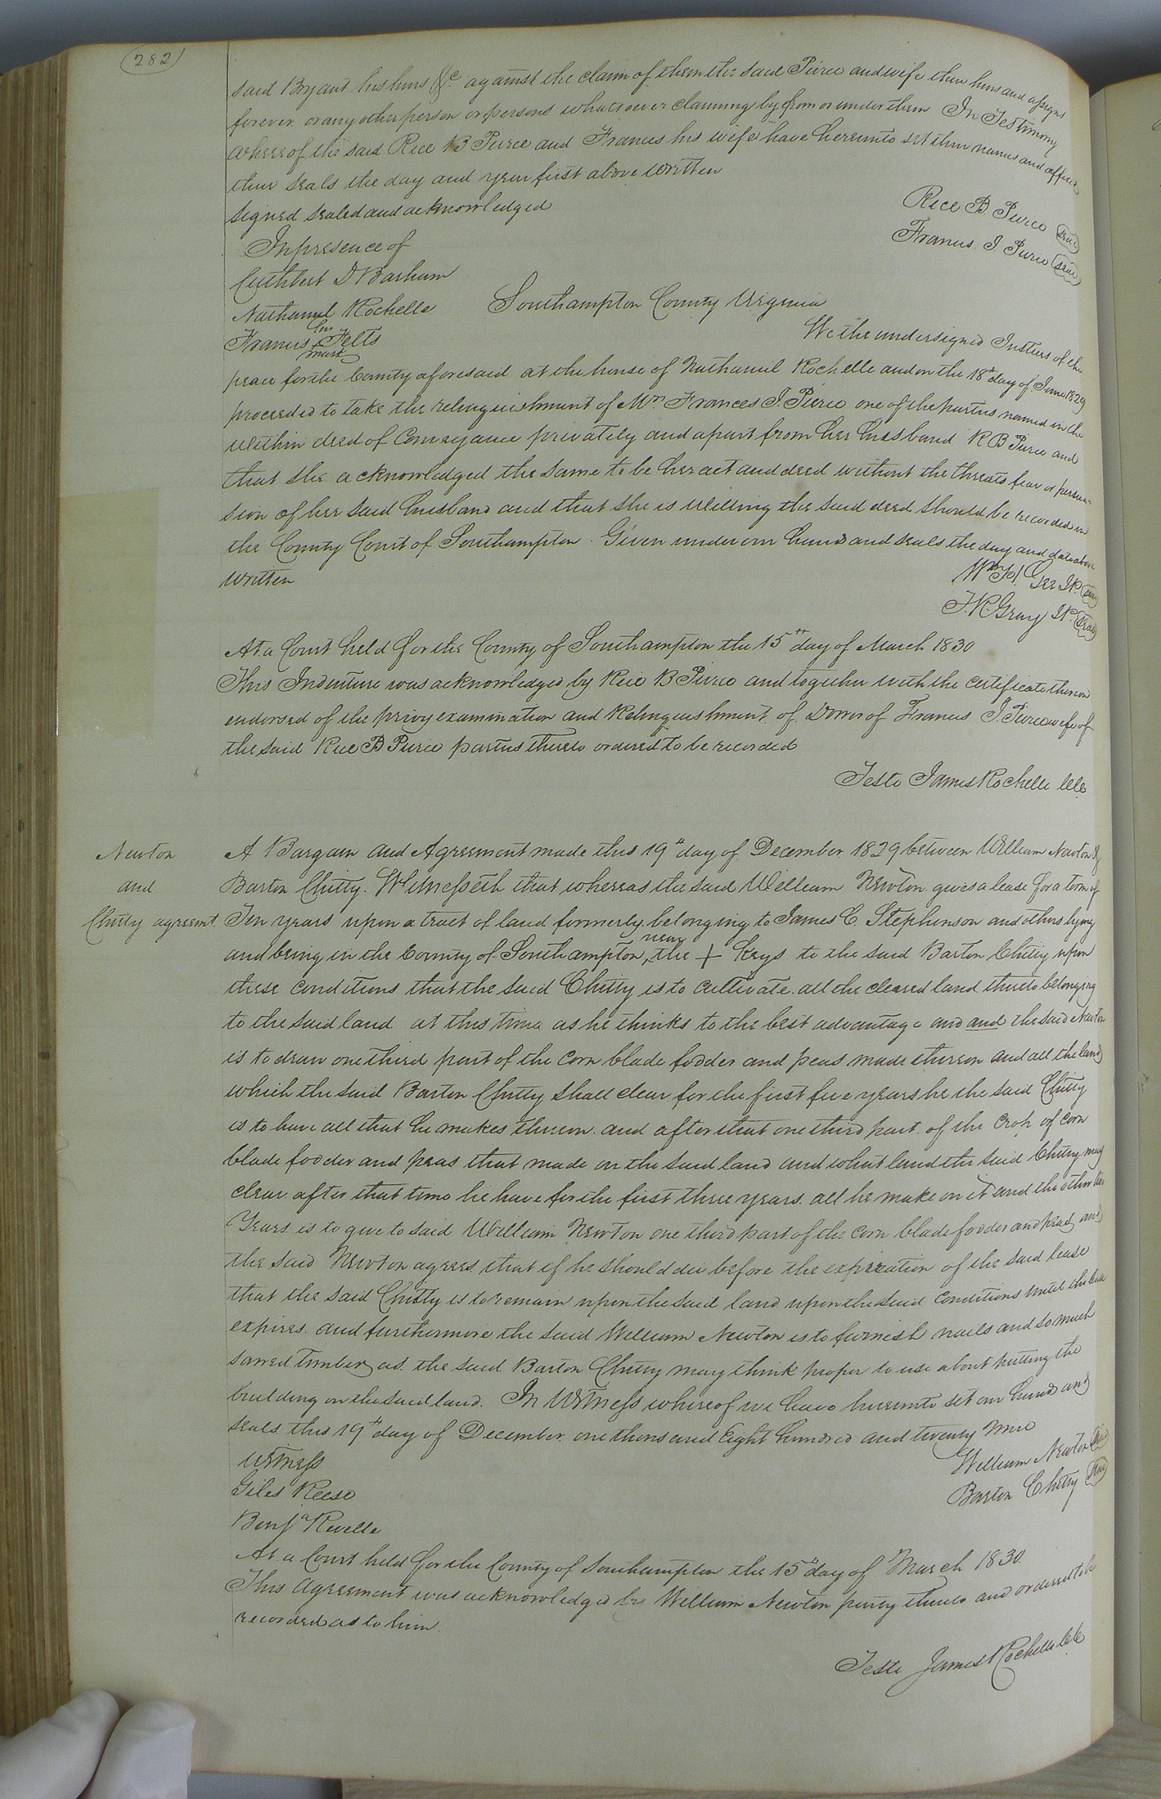 282
said Bryant his heirs &c against the claim of them the said Pierce and wife their heirs and assigns
forever or any other person or persons whatsoever claiming by from or under them In Testimony
whereof the said Rice B Pierce and Frances his wife have hereunto set their names and affixed
their seals the day and year first above written
signed sealed and acknowledged
Rice B Pierce Seal
In presence of
Frances J Pierce Seal
Cuthbert D Barham
Nathaniel Rochelle
Southampton County Virginia
Francis his mark Felts
We the undersigned Justices of the
peace for the County aforesaid at the house of Nathaniel Rochelle and on the 18th day of June 1829
proceeded to take the relinquishment of Mrs Frances J. Pierce one of the parties named in the
within deed of Conveyance privately and apart from her husband R B Pierce and
that she acknowledged the same to be her act and deed without the threats fear or persua-
sion of her said husband and that she is willing the said deed should be recorded in
the County Court of Southampton. Given under our hands and seals the day and date above
written
Gee J.P. Seal
Gray J.P. Seal
At a Court held for the County of Southampton the 15th day of March 1830
This Indenture was acknowledged by Rice B Pierce and together with the certificate thereon
endorsed of the privy examination and Relinquishment of Dower of Frances J. Pierce wife of
the said Rice B Pierce parties thereto ordered to be recorded
Teste James Rochelle Clk
Newton
and
Chitty agreemt
A Bargain and Agreement made this 19th day of December 1829 between William Newton &
Barton Chitty. Witnesseth that whereas the said William Newton gives a lease for a term of
Ten years upon a tract of land formerly belonging to James C. Stephenson and others lying
and being in the County of Southampton, near the + Keys to the said Barton Chitty upon
these conditions that the said Chitty is to cultivate all the cleared land thereto belonging
to the said land at this time as he thinks to the best advantage and and the said Newton
is to draw one third part of the corn blade fodder and peas made thereon and all the land
which the said Barton Chitty shall clear for the first five years he the said Chitty
is to have all that he makes thereon and after that one third part of the crop of corn
blade fodder and peas that made on the said land and what land the said Chitty may
clear after that time he have for the first three years all he make on it and the other two
Years is to give to said William Newton one third part of the corn blade fodder and peas and
the said Newton agrees that if he should die before the expiration of the said lease
that the said Chitty is to remain upon the said land upon the said conditions until the lease
expires and furthermore the said William Newton is to furnish nails and so much
sawed timber as the said Barton Chitty may think proper to use about putting the
building on the said land. In Witness whereof we have hereunto set our hands and
seals this 19th day of December one thousand Eight hundred and twenty nine
Witness
William Newton Seal
Giles Reese
Barton Chitty Seal
Benja Revelle
At a Court held for the County of Southampton the 15th day of March 1830
This Agreement was acknowledged by William Newton party thereto and ordered to be
recorded as to him
Teste James Rochelle Clk